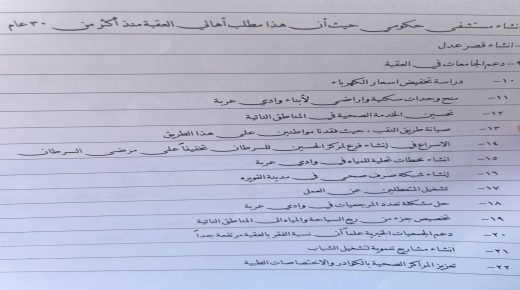 انشاء مستشفى حكومي حيث أن هذا مطلب أهالي العقبة منذ أكثر من ٣٠ عام
انشاء قصر عدل
٩- دعم الجامعات في العقبة
١٠- دراسة تخفيض اسعار الكهرباء
١١- منح وحدات سكنية واراضي لأبناء وادي عربة
١٢- تحسين الخدمة الصحية في المناطق النائية
١٣- صيانة طريق النقب، حيث فقدنا مواطنين على هذا الطريق
١٤- الاسراع في إنشاء فرع لمركز الحسين للسرطان تخفيفاً على مرضى السرطان
١٥- انشاء محطات تحلية للمياه في وادي عربة
١٦- إنشاء شبكة صرف صحي في مدينة القويره
١٧- تشغيل المتعطلين عن العمل
١٨- حل مشكلة تعدد المرجعيات في وادي عربة
١٩- تخصيص جزء من ريع السياحة والمياه الى المناطق النائية
٢٠- دعم الجمعيات الخيرية علماً أن نسبة الفقر بالعقبة مرتفعة جداً
٢١- انشاء مشاريع تنموية لتشغيل الشباب
٢٢- تعزيز المراكز الصحية بالكوادر والاختصاصات الطبية